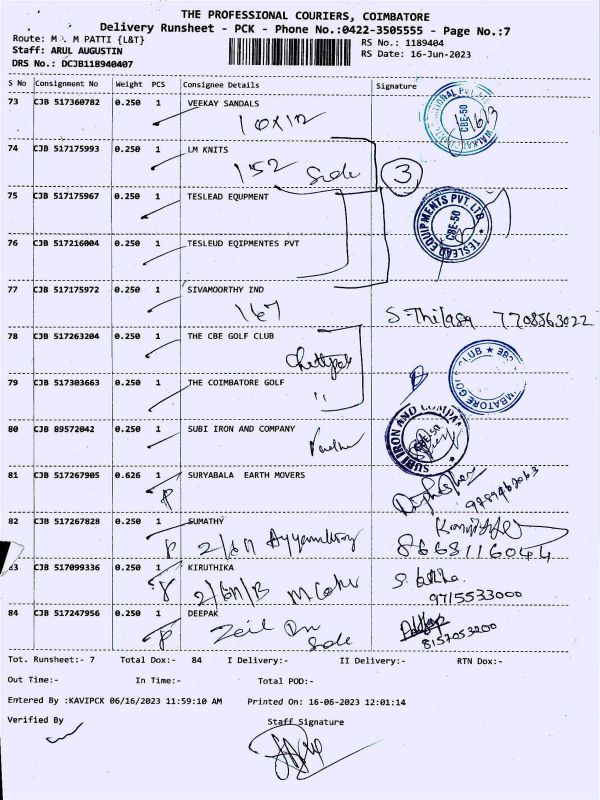 THE PROFESSIONAL COURIERS, COIMBATORE
Delivery Runsheet - PCK - Phone No.:0422-3505555 - Page No.:7
Route: M . M PATTI {L&T}
RS No.: 1189404
Staff: ARUL AUGUSTIN
RS Date: 16-Jun-2023
DRS No.: DCJB118940407
S No Consignment No Weight PCS Consignee Details Signature
73 CJB 517360782 0.250 1 VEEKAY SANDALS
10x12
CBE-50
74 CJB 517175993 0.250 1 LM KNITS
152 Side
3
75 CJB 517175967 0.250 1 TESLEAD EQUPMENT
TESLEAD EQUIPMENTS PVT. LTD.
CBE-50
76 CJB 517216004 0.250 1 TESLEUD EQIPMENTES PVT
77 CJB 517175972 0.250 1 SIVAMOORTHY IND
167
S. Thilaga 7708563022
78 CJB 517263204 0.250 1 THE CBE GOLF CLUB
79 CJB 517303663 0.250 1 THE COIMBATORE GOLF
"
80 CJB 89572042 0.250 1 SUBI IRON AND COMPANY
SUBI IRON AND COMPANY
81 CJB 517267905 0.626 1 SURYABALA EARTH MOVERS
82 CJB 517267828 0.250 1 SUMATHY
8668116044
83 CJB 517099336 0.250 1 KIRUTHIKA
9715533000
84 CJB 517247956 0.250 1 DEEPAK
Side
8157053200
Tot. Runsheet:- 7 Total Dox:- 84 I Delivery:- II Delivery:- RTN Dox:-
Out Time:- In Time:- Total POD:-
Entered By :KAVIPCK 06/16/2023 11:59:10 AM Printed On: 16-06-2023 12:01:14
Verified By Staff Signature